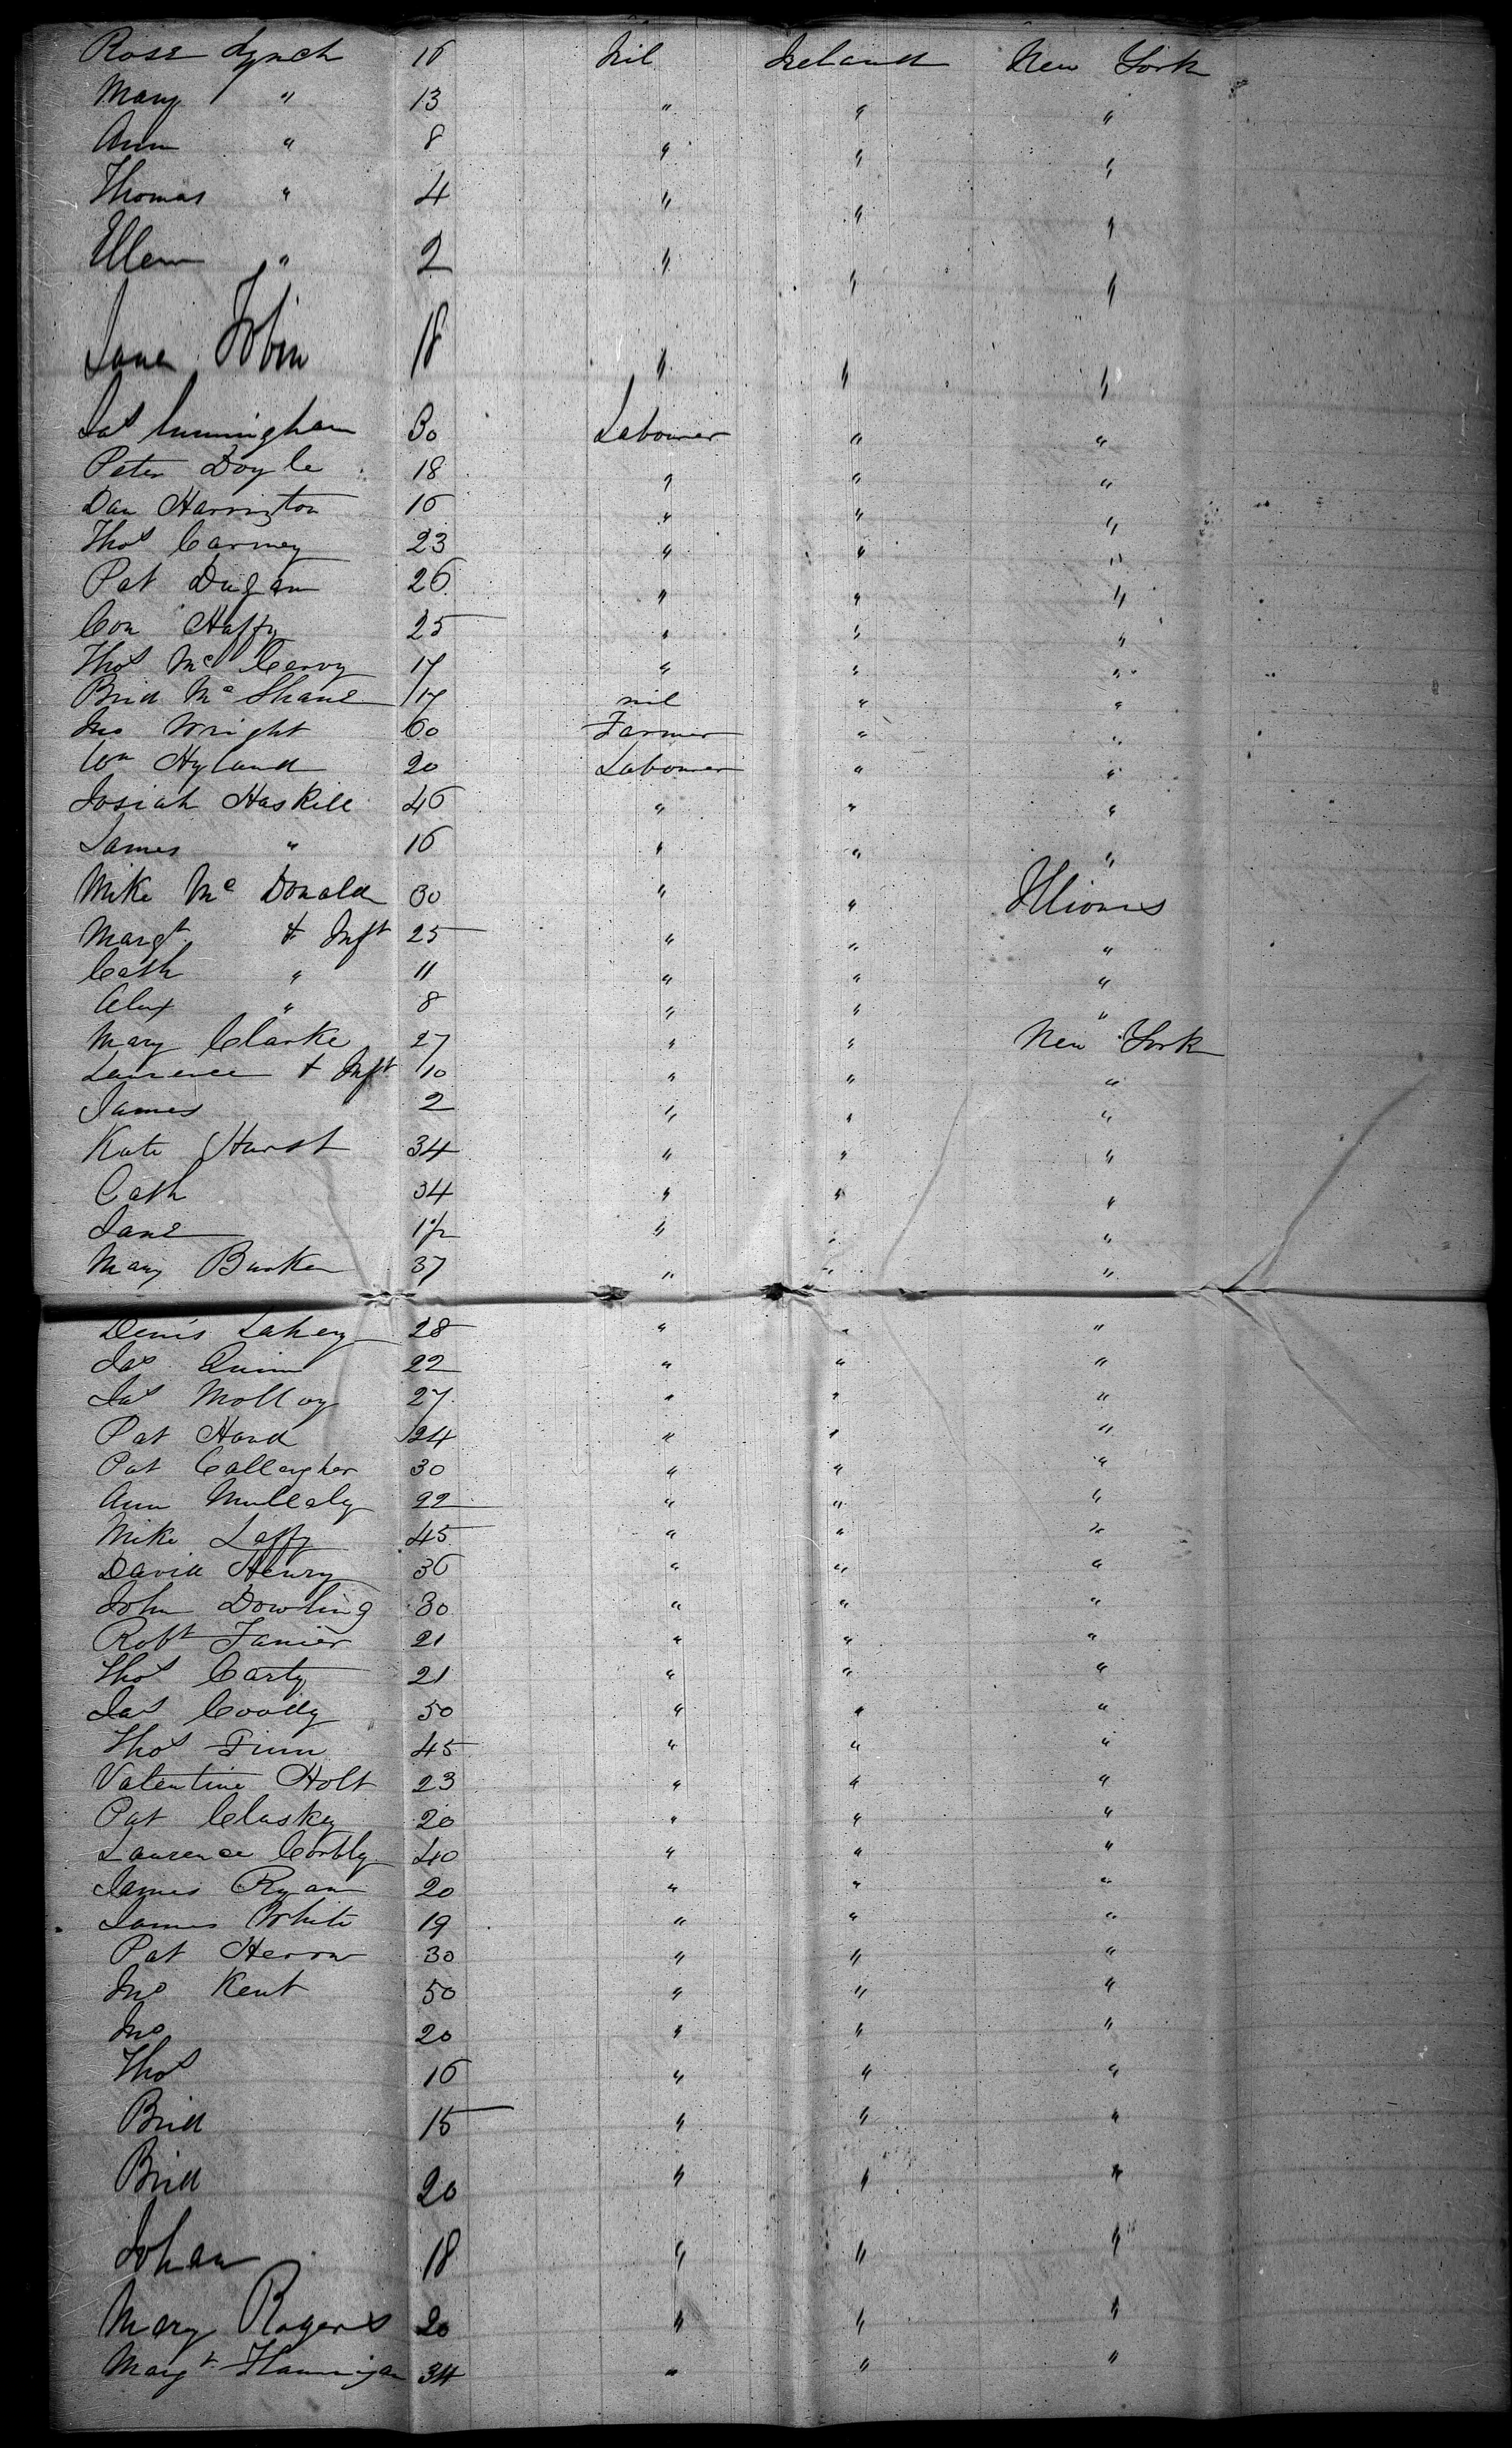 Rose Lynch 16 Nil Ireland New York
Mary " 13 " " "
Ann " 8 " " "
Thomas " 4 " " "
Ellen " 2 " " "
Jane Tobin 18 " " "
Jas Cunningham 30 Labourer " "
Peter Doyle 18 " " "
Dan Harrington 16 " " "
Thos Carney 23 " " "
Pat Dugan 26 " " "
Con Haffy 25 " " "
Thos Mc 17 " " "
Brid Mc Shane 17 nil " "
Jno Wright 60 Farmer " "
Wm Hyland 20 Labourer " "
Josiah Haskill 46 " " "
James " 16 " " "
Mike Mc Donald 30 " " Illionis
Margt & Inft 25 " " "
Cath " 11 " " "
Alex " 8 " " "
Mary Clarke 27 " " New York
Laurence & Inft 10 " " "
James 2 " " "
Kate Hurst 34 " " "
Cath 34 " " "
Jane " " "
Mary Burke 37 " " "
Denis Lahey 28 " " "
Jas Quinn 22 " " "
Jas Molloy 27 " " "
Pat Hand 24 " " "
Pat Callaugher 30 " " "
Ann Mullaly 22 " " "
Mike Laffy 45 " " "
David Henry 36 " " "
John Dowling 30 " " "
Robt 21 " " "
Thos Carty 21 " " "
Jas 50 " " "
Thos Finn 45 " " "
Valentine Holt 23 " " "
Pat Cluskey 20 " " "
Laurence Corbly 40 " " "
James Ryan 20 " " "
James White 19 " " "
Pat Heron 30 " " "
Jno Kent 50 " " "
Jno 20 " " "
Thos 16 " " "
Brid 15 " " "
Brid 20 " " "
Johan 18 " " "
Mary Rogers 20 " " "
Margt Flannigan 34 " " "